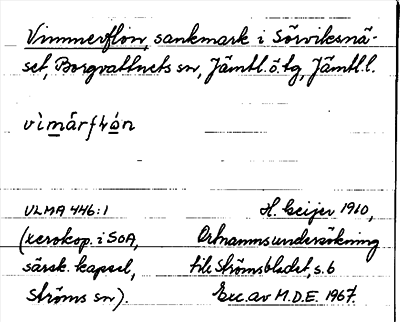 Vimmerflon, sankmark i Sörviksnä-
set, Borgvattnets sn, Jämtl.ö.tg, Jämtl.l.
vìmárfłòn
ULMA 446:1
H. Geijer 1910,
(xerokop. i SOA,
Ortnamnsundersökning
särsk. kapsel,
till Strömsbladet, s. 6
Ströms sn).
Exc. av M.D.E. 1967.